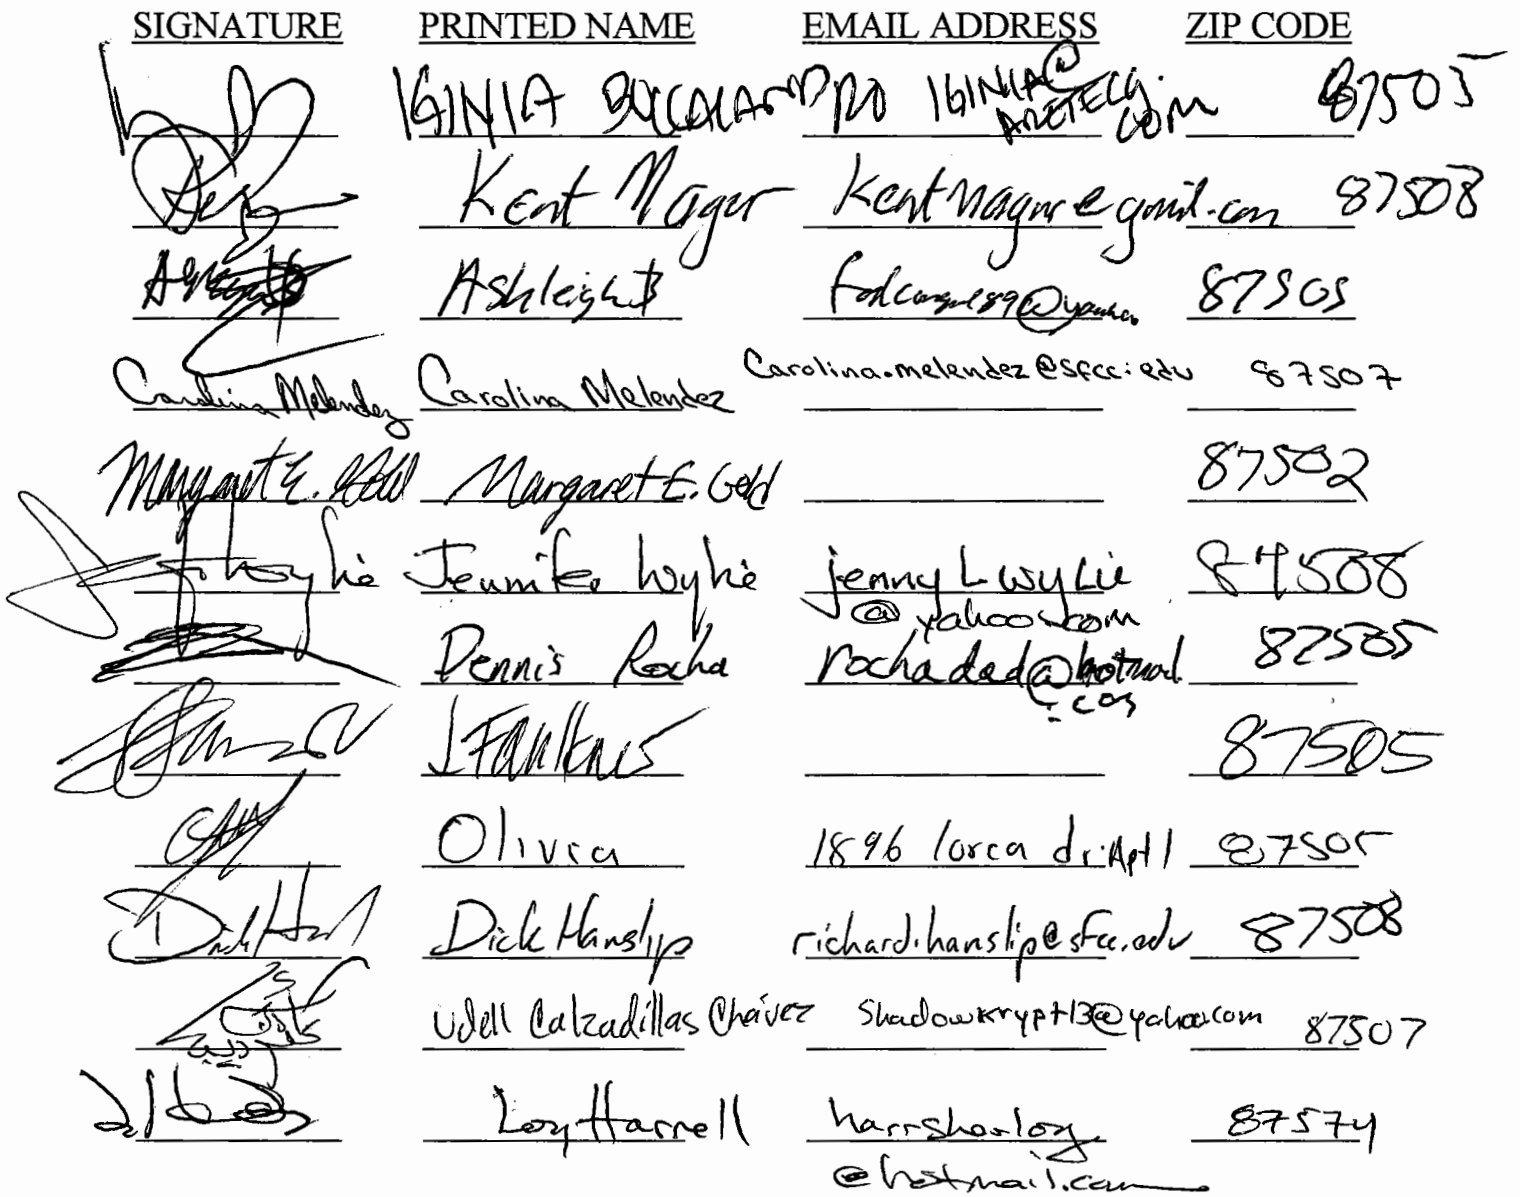 SIGNATURE PRINTED NAME EMAIL ADDRESS ZIP CODE
IGINIA BOCCALANDRO IGINIA@ 87505
ARETECG.
COM
Kent Magur 87508
Ashleigh B 87505
Carolina Melendez Carolina Melendez Carolina.melendez@sfcc.edu 87507
Margaret E. Gold Margaret E. Gold 87502
Jennifer Wylie jennyLwylie 87508
@yahoo.com
Dennis Rocha rochadad@hotmail 87505
.com
J Faulkner 87505
Olivia 1896 lorca dr. Apt 1 87505
Dick Hanslip richard.hanslip@sfcc.edu 87508
Udell Calzadillas Chávez Shadowkrypt13@yahoo.com 87507
Loy Harrell 87574
@hotmail.com